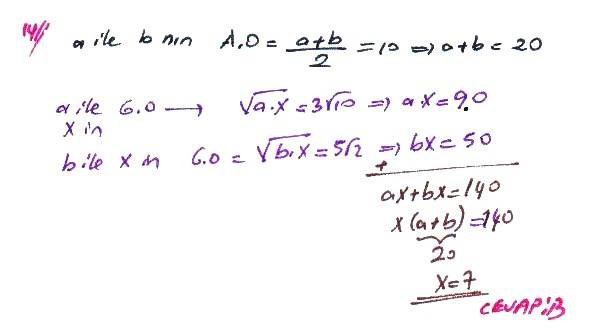 14)
a ile b nin A.O = (a+b)/2 = 10 ⇒ a+b = 20
a ile G.O → √a.x = 3√10 ⇒ a.x = 90
x in
b ile x in G.O = √b.x = 5√2 ⇒ bx = 50
+
ax+bx = 140
x(a+b) = 140
20
x = 7
CEVAP: B